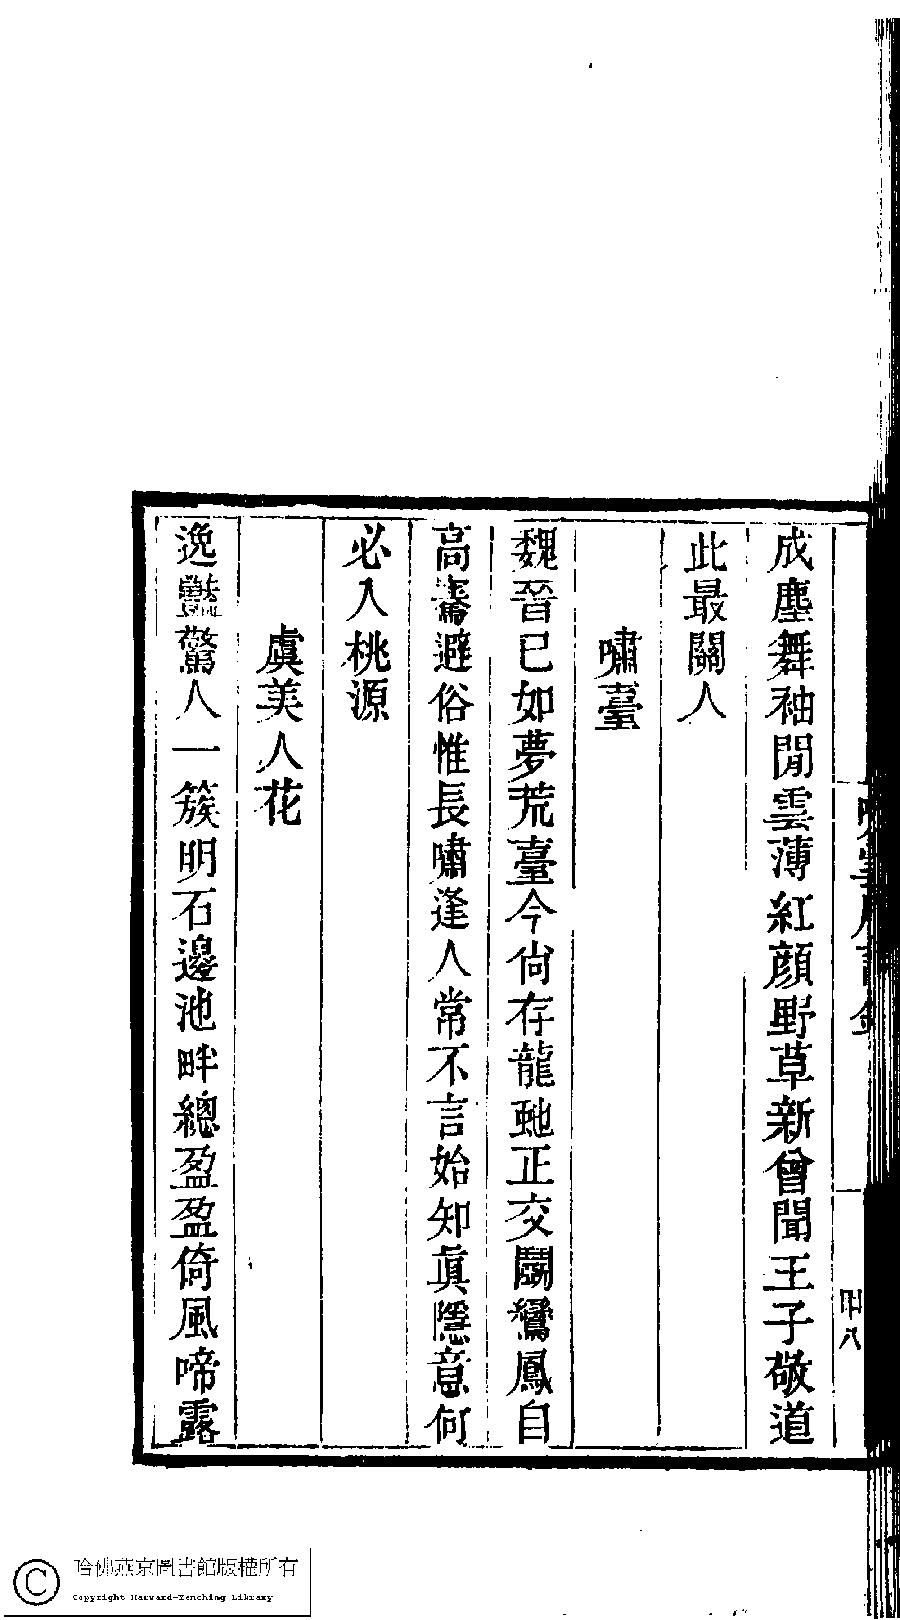 成塵舞袖閒雲薄紅顔野草新曾聞王子敬道
此最關人
嘯臺
魏晉已如夢荒臺今尙存龍虵正交鬭鸞鳳自
高騫避俗惟長嘯逢人常不言始知眞隱意何
必入桃源
虞美人花
逸豔驚人一簇明石邊池畔總盈盈倚風啼露
卌八
哈佛燕京圖書館版權所有
Copyright Harvard-Yenching Library